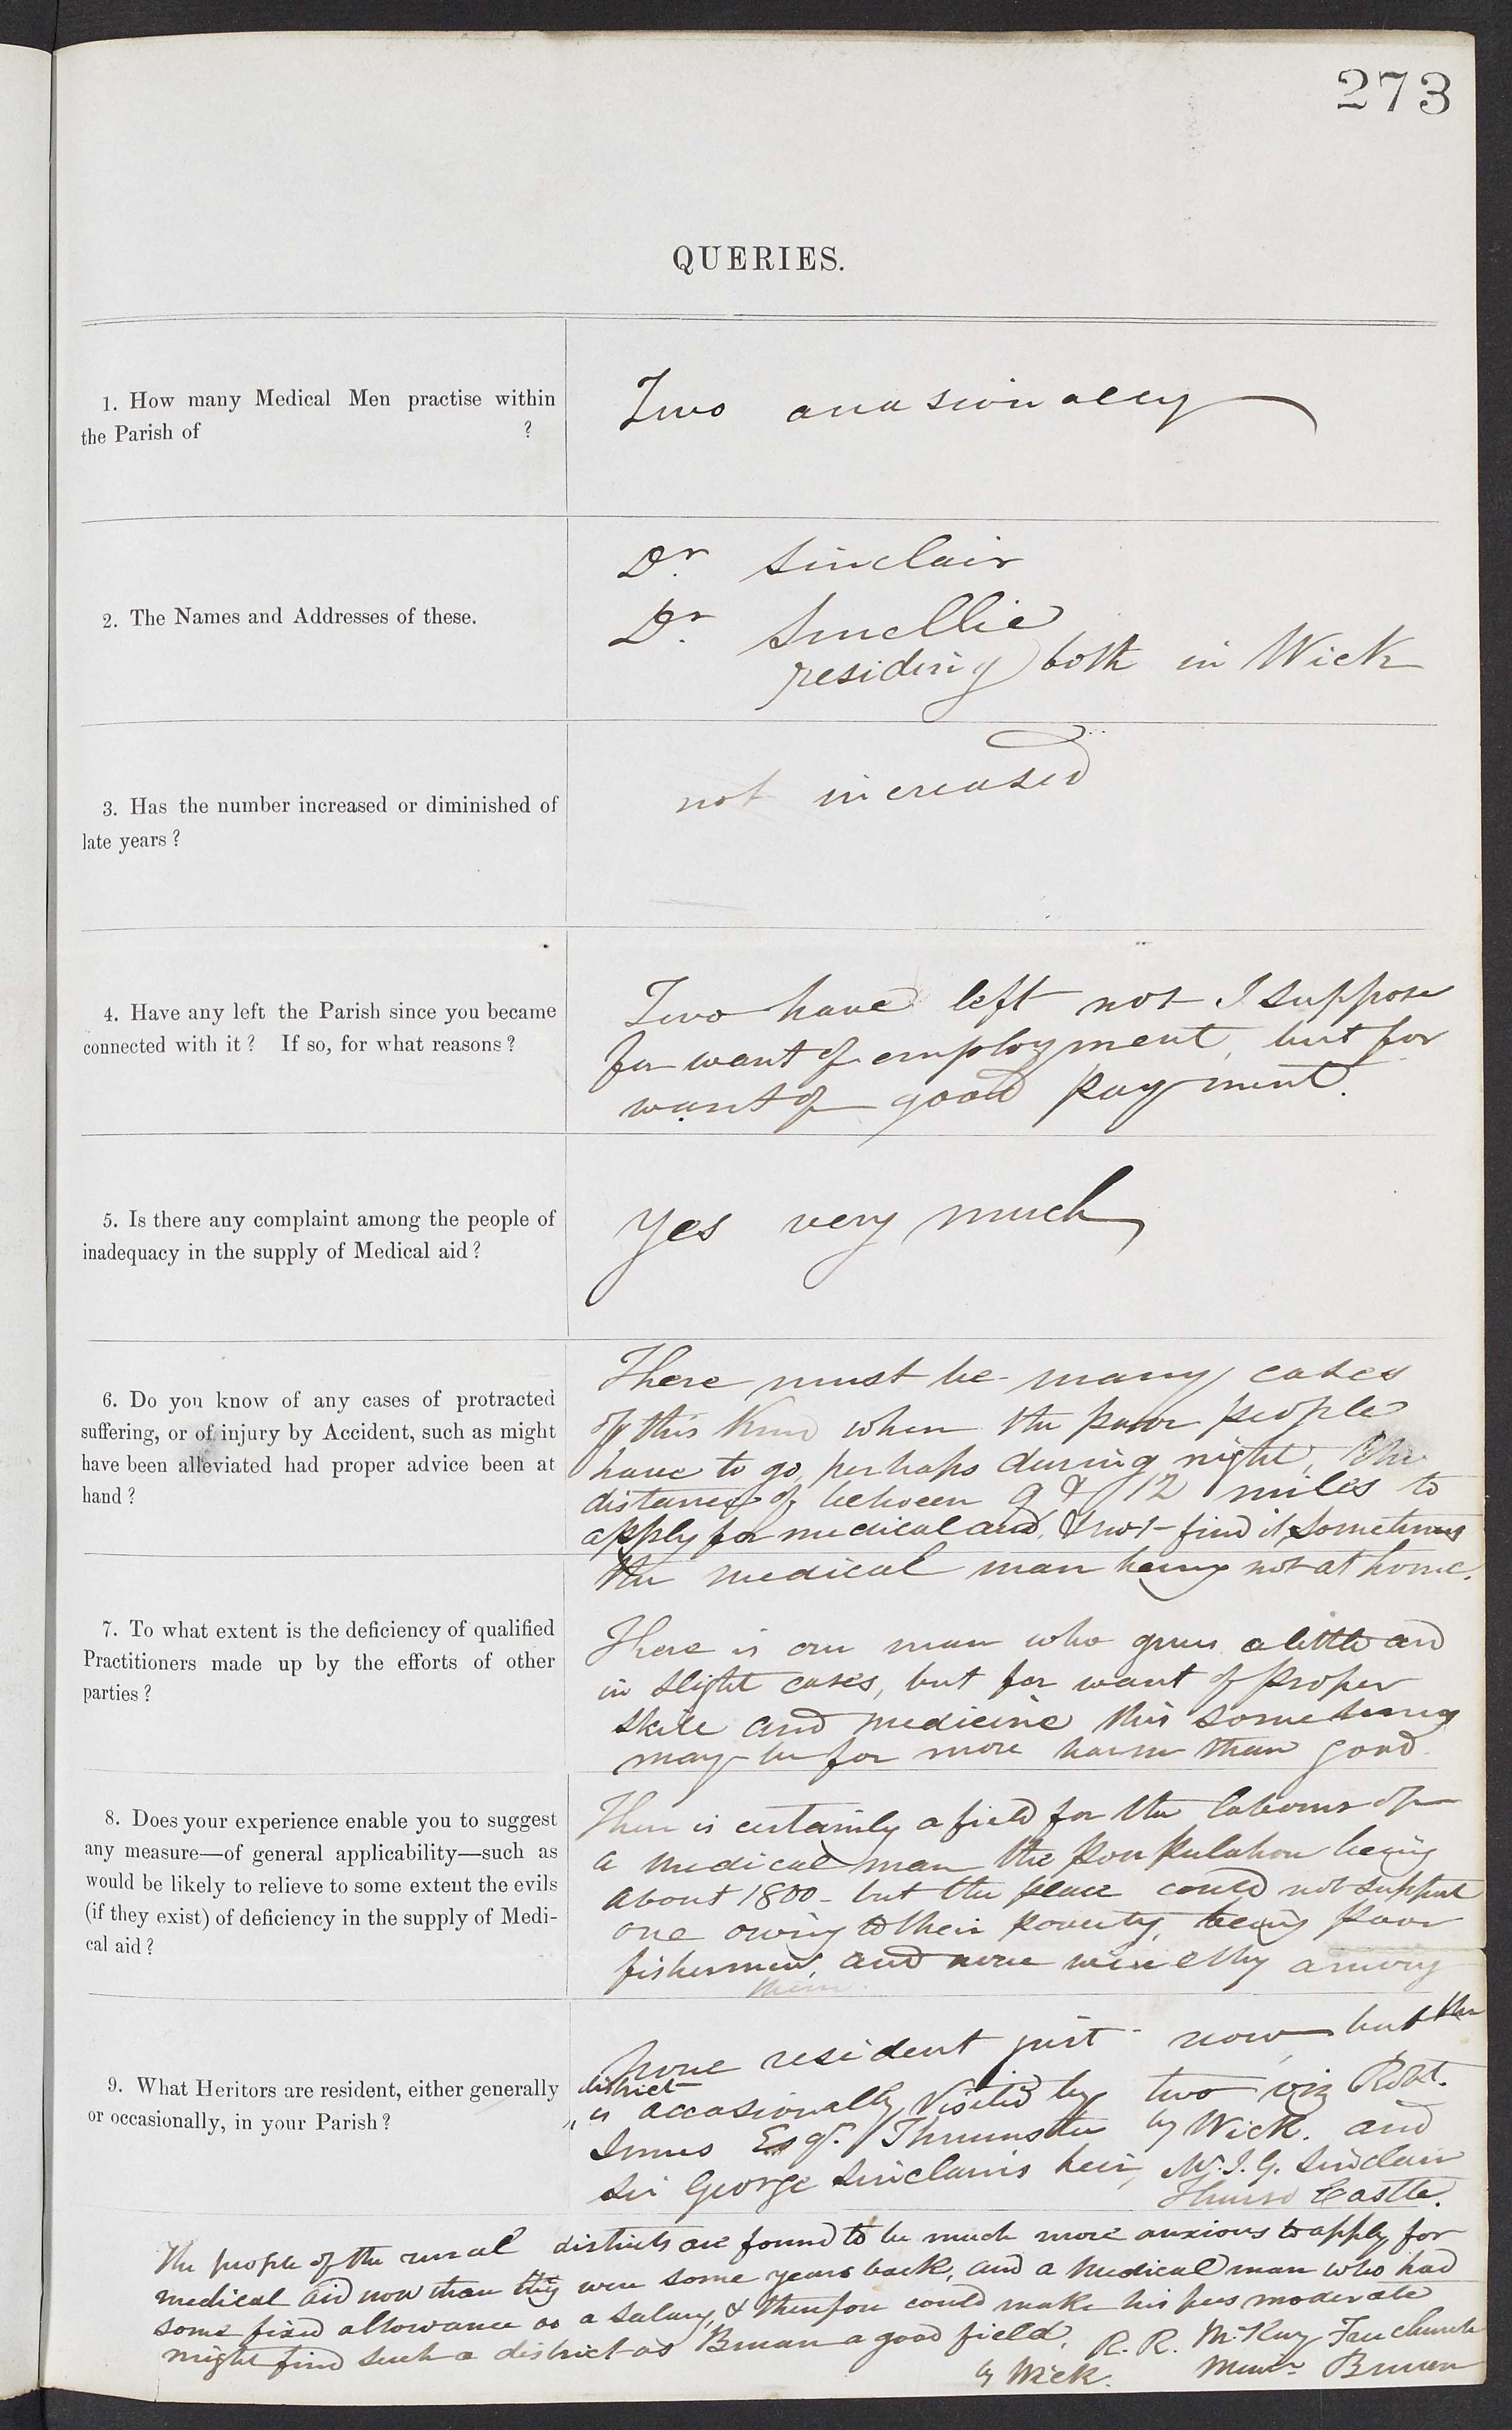 273
QUERIES.
1. How many Medical Men practise within
the Parish of ?
Two occasionally
2. The Names and Addresses of these.
Dr. Sinclair
Dr. Smellie
residing both in Wick
3. Has the number increased or diminished of
late years?
not increased
4. Have any left the Parish since you became
connected with it? If so, for what reasons?
Two have left not I suppose
for want of employment, but for
want of good payment.
5. Is there any complaint among the people of
inadequacy in the supply of Medical aid?
Yes very much
6. Do you know of any cases of protracted
suffering, or of injury by Accident, such as might
have been alleviated had proper advice been at
hand?
There must be many cases
of this kind when the poor people
have to go, perhaps during night, the
distance of between 9 & 12 miles to
apply for medical aid, & not find it, sometimes
the medical man being not at home.
7. To what extent is the deficiency of qualified
Practitioners made up by the efforts of other
parties?
There is one man who gives a little aid
in slight cases, but for want of proper
skill and medicine this sometimes
may be far more harm than good
8. Does your experience enable you to suggest
any measure—of general applicability—such as
would be likely to relieve to some extent the evils
(if they exist) of deficiency in the supply of Medi-
cal aid?
There is certainly a field for the labours of
a medical man the poupulation being
about 1800 - but the place could not support
one owing to their poverty, being poor
fishermen, and none wealthy among
them.
9. What Heritors are resident, either generally
or occasionally, in your Parish?
None resident just now, but the
district
is occasionally visited by two viz Robt.
Innes Esqr. Thrumster by Wick. and
Sir George Sinclair's heir, Mr. J. G. Sinclair
Thurso Castle.
The people of the rural districts are found to be much more anxious to apply for
medical aid now than they were some years back, and a medical man who had
some fixed allowance as a salary, & therefore could make his fees moderate
might find such a district as Bruan a good field.
R. R. McKay Free church
by Wick. Minr. Bruan